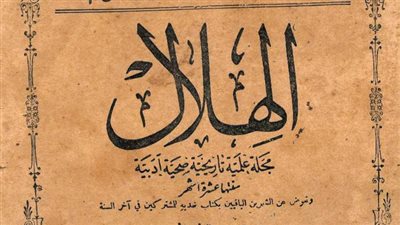 الهلال
مجلة علمية تاريخية صحية ادبية
سنتها عشرة اشهر
ونعوض عن الشهرين الباقيين بكتاب نهديه للمشتركين في آخر السنة